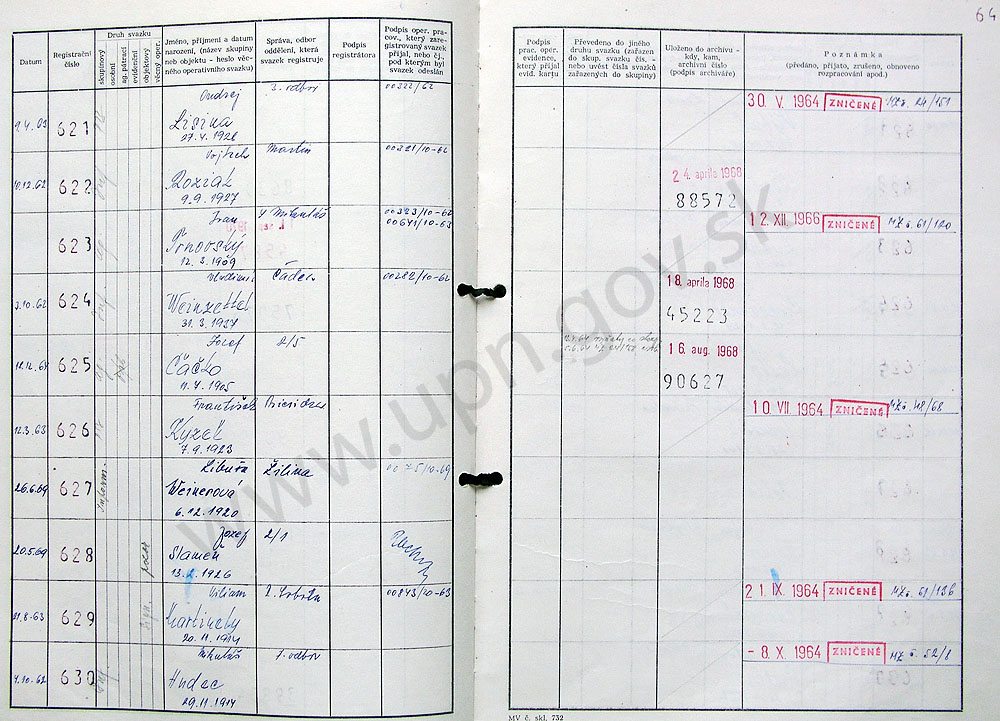 64
Datum
Registrační číslo
Druh svazku
skupinový
osobní
ag. pátrací
evidenční
objektový
věcný oper.
Jméno, příjmení a datum
narození, (název skupiny
neb objektu - heslo věc-
ného operativního svazku)
Správa, odbor
oddělení, která
svazek registruje
Podpis
registrátora
Podpis oper. pra-
cov., který zare-
gistrovaný svazek
přijal, nebo čj.,
pod kterým byl
svazek odeslán
Podpis
prac. oper.
evidence,
který přijal
evid. kartu
Převedeno do jiného
druhu svazku (zařazen
do skup. svazku čís. -
nebo uvést čísla svazků
zařazených do skupiny)
Uloženo do archivu -
kdy, kam,
archivní číslo
(podpis archiváře)
Poznámka
(předáno, přijato, zrušeno, obnoveno
rozpracování apod.)
621
Ondrej
Lisina
27.4.1928
3. odbor
00322/62
30. V. 1964 ZNIČENÉ
10.12.62 622
Vojtech
Roziak
9.9.1927
Martin
00321/10-62
24. apríla 1968
88572
623
Ivan
Trnovský
12.3.1909
Mikuláš
00323/10-62
00641/10-63
12. XII. 1966 ZNIČENÉ MZ č. 61/120
3.10.62 624
Weinzettel
31.3.1937
Čadca
00282/10-62
18. apríla 1968
45223
625
Jozef
Čačko
11.4.1905
2/5
16. aug. 1968
90627
12.3.63 626
František
Kyzek
7.9.1923
Prievidza
10. VII. 1964 ZNIČENÉ MZ č. 48/68
26.6.69 627
Inform.
Libuša
Weinerová
6.12.1920
Žilina
0075/10-69
20.5.69 628
Jozef
Slameň
13.2.1926
2/1
21.8.63 629
Viliam
Martinely
20.11.1914
00843/10-63
21. IX. 1964 ZNIČENÉ MZ č. 61/136
4.10.62 630
Mikuláš
Hudec
29.11.1914
1. odbor
- 8. X. 1964 ZNIČENÉ MZ č. 52/8
MV č. skl. 732
www.upn.gov.sk